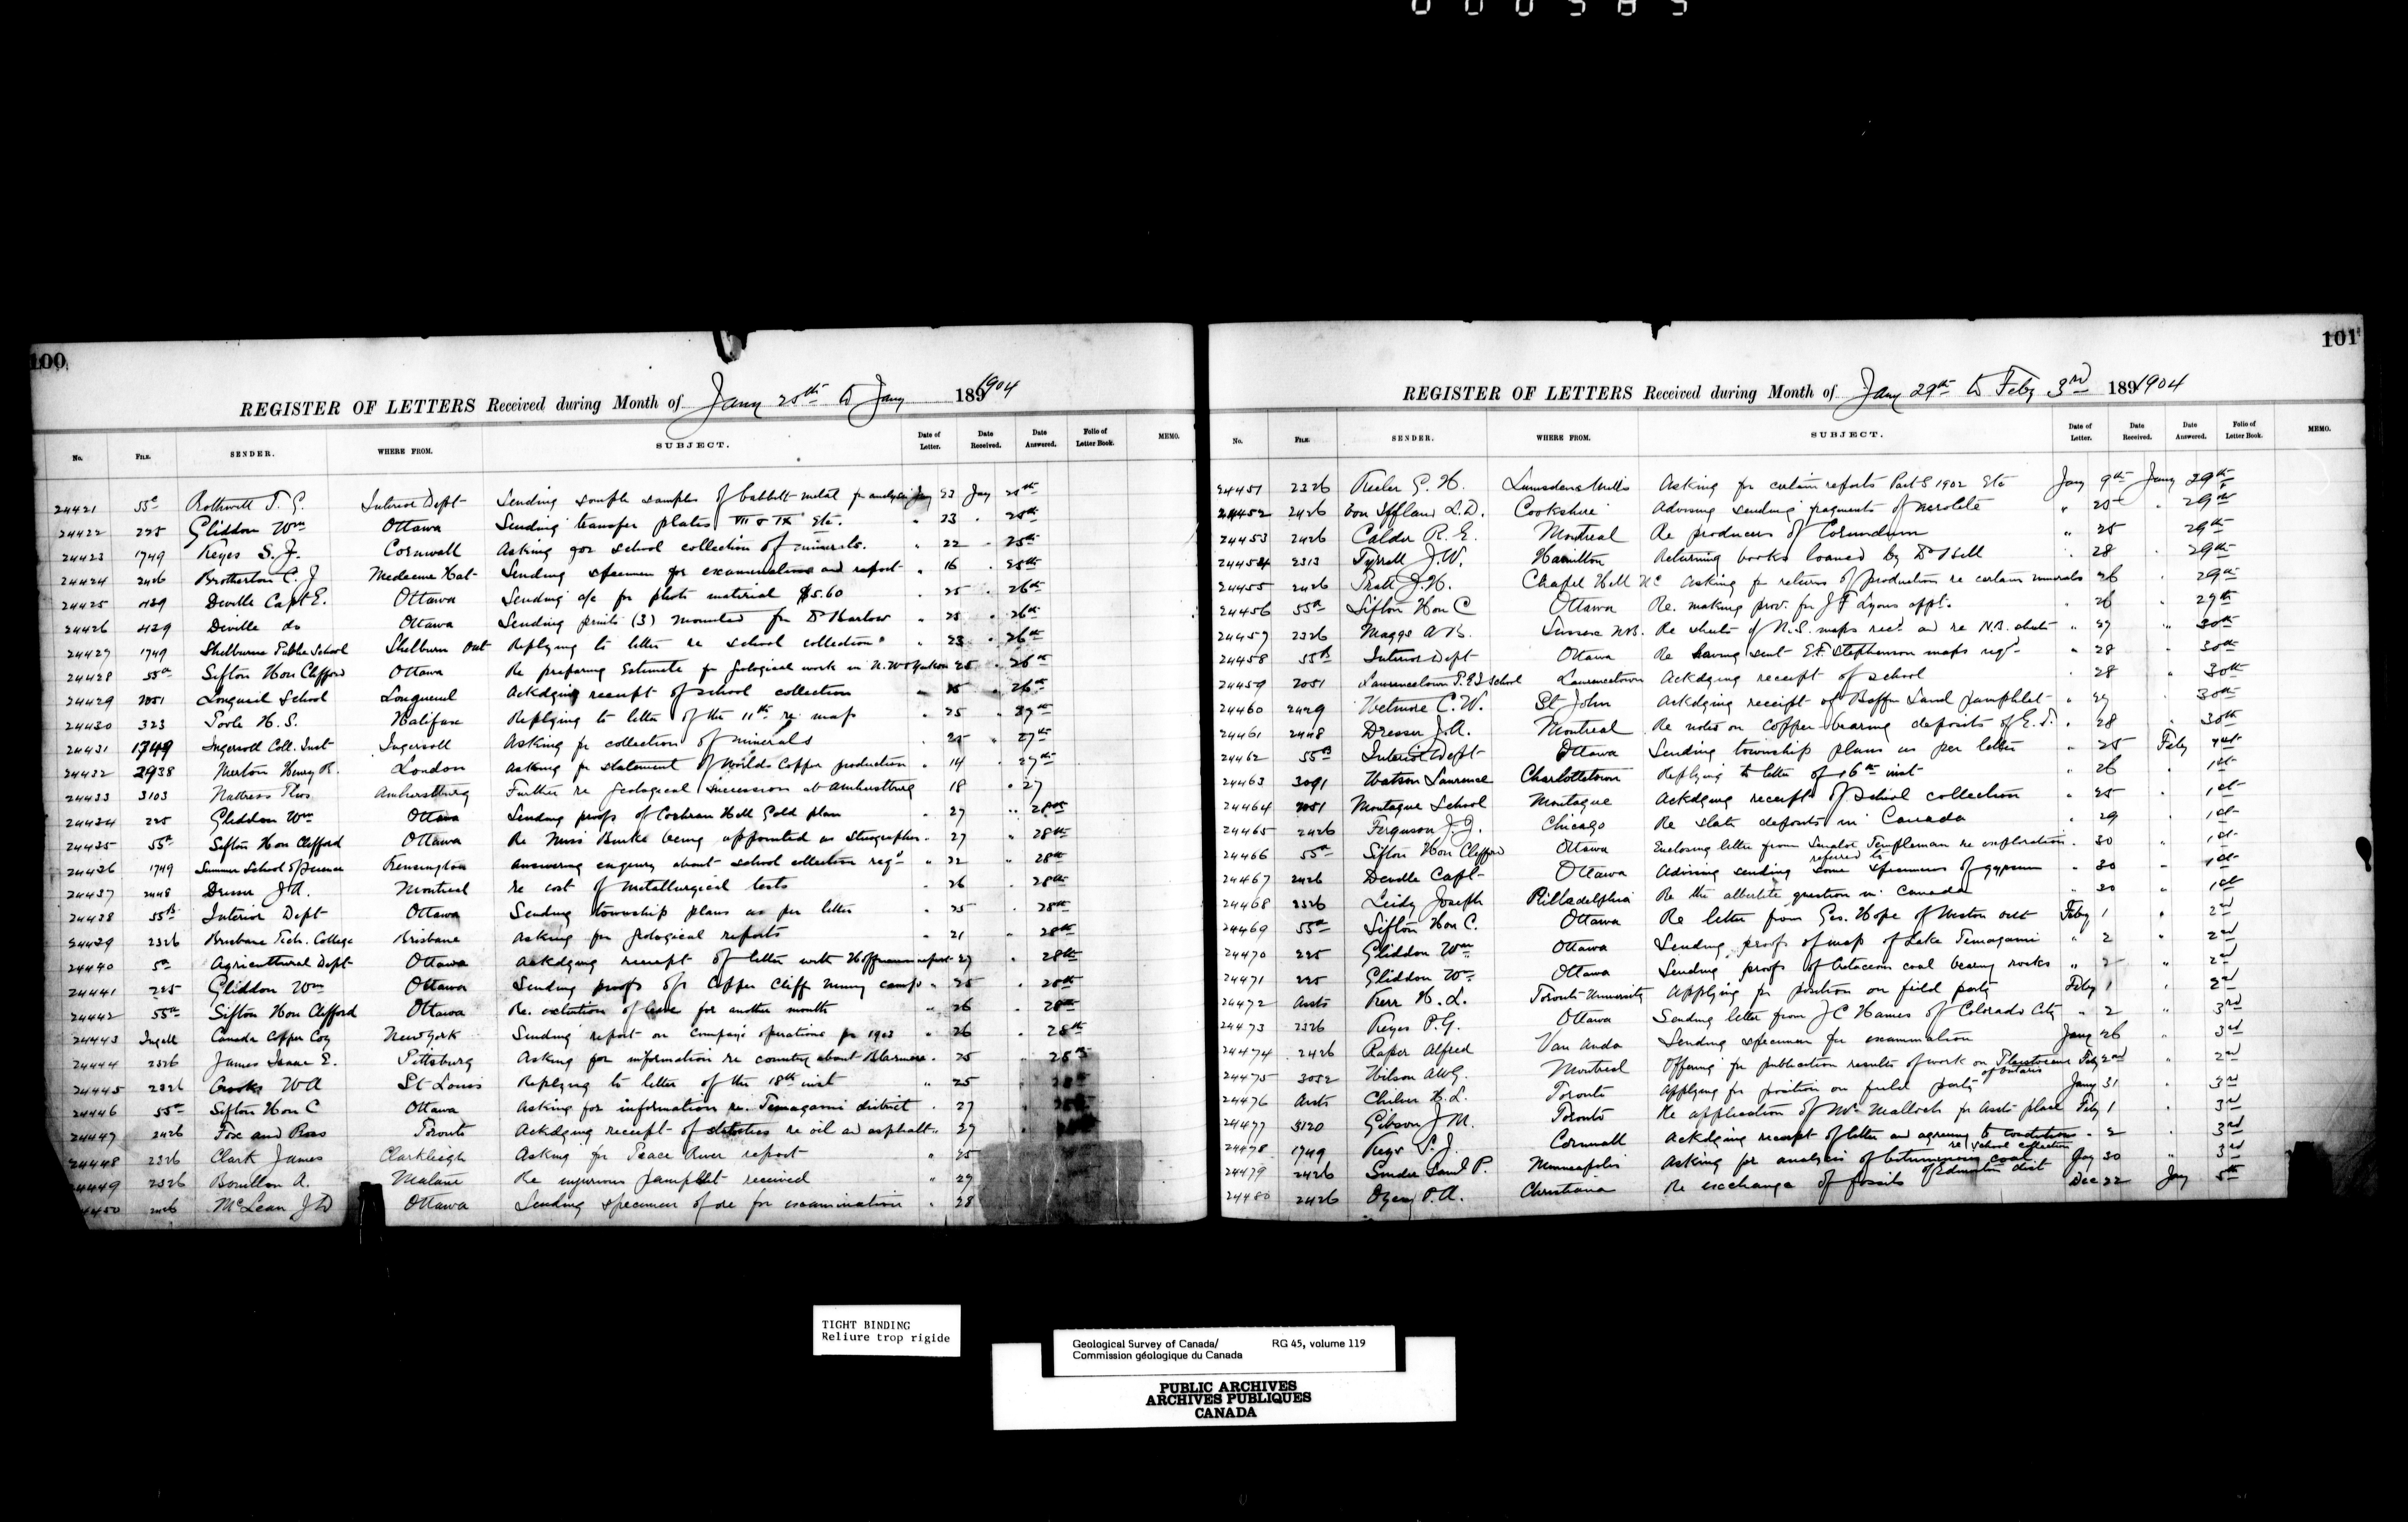 000585
100
REGISTER OF LETTERS Received during Month of Jany 25th to Jany 1891904
No. FILE. SENDER. WHERE FROM. SUBJECT. Date of Letter. Date Received. Date Answered. Folio of Letter Book. MEMO.
24421 55c Rothwell T. G. Interior Dept Sending sample samples of babbitt metal for analysis Jany 23 Jany 25th
24422 225 Gliddon Wm Ottawa Sending transfer plates VII & IX Etc. " 23 " 25th
24423 1749 Keyes S. J. Cornwall Asking for school collection of minerals. " 22 " 25th
24424 2426 Brotherton C. J Medecine Hat Sending specimen for examination and report " 16 " 25th
24425 429 Deville Capt E. Ottawa Sending a/c for photo material $5.60 " 25 " 26th
24426 429 Deville do Ottawa Sending prints (3) mounted for Dr Barlow " 25 " 26th
24427 1749 Shelburne Public School Shelburn Ont Replying to letter re school collection " 23 " 26th
24428 55a Sifton Hon Clifford Ottawa Re preparing Estimate for geological work in N.W & Yukon 25 " 26th
24429 2051 Longueil School Longueuil Ackdging receipt of school collection " 25 " 26th
24430 323 Poole H. S. Halifax Replying to letter of the 11th re map " 25 " 27th
24431 1749 Ingersoll Coll. Inst Ingersoll Asking for collection of minerals " 25 " 27th
24432 2938 Merton Henry R. London Asking for statement of World's Copper production " 14 " 27th
24433 3103 Nattress Thos Amherstburg Further re geological succession at Amherstburg 18 " 27
24434 225 Gliddon Wm Ottawa Sending proofs of Cochran Hill Gold plan " 27 " 28th
24435 55a Sifton Hon Clifford Ottawa Re Miss Burke being appointed as stenographer " 27 " 28th
24436 1749 Summer School of Science Kensington Answering enquiry about school collection reqd " 22 " 28th
24437 2448 Dresser J. A. Montreal re cost of metallurgical tests " 26 " 28th
24438 55B Interior Dept Ottawa Sending township plans as per letter " 25 " 28th
24439 2326 Brisbane Tech. College Brisbane Asking for geological reports " 21 " 28th
24440 5a Agricultural Dept Ottawa Ackdging receipt of letter with Hoffmann report 27 " 28th
24441 225 Gliddon Wm Ottawa Sending proofs of Copper Cliff mining camp " 25 " 28th
24442 55a Sifton Hon Clifford Ottawa Re. extention of leave for another month " 26 " 28th
24443 Ingall Canada Copper Coy New York Sending report on Company's operations for 1903 " 26 " 28th
24444 2326 James Isaac E. Pittsburg Asking for information re country about Blairmore. " 25 " 28th
24445 2326 Crooks W A St Louis Replying to letter of the 18th inst " 25
24446 55a Sifton Hon C Ottawa Asking for information re. Temagami district " 27
24447 2426 Fox and Ross Toronto Ackdging receipt of statistics re oil and asphalt " 27
24448 2326 Clark James Clarkleigh Asking for Peace River report " 25
24449 2326 Bouillon A. Matane Re injurious pamphlet received " 29
24450 2426 McLean J D Ottawa Sending specimen of ore for examination " 28
101
REGISTER OF LETTERS Received during Month of Jany 29th to Feby 3rd 1891904
No. FILE. SENDER. WHERE FROM. SUBJECT. Date of Letter. Date Received. Date Answered. Folio of Letter Book. MEMO.
24451 2326 Keeler G. H. Lumsdens Mills Asking for certain reports Part S 1902 Etc Jany 9th Jany 29th
24452 2426 von Iffland L.D. Cookshire Advising sending fragments of aerolite " 25 " 29th
24453 2426 Calder R. E. Montreal Re producers of Corundum " 25 29th
24454 2313 Tyrrell J. W. Hamilton Returning books loaned by Dr Bell " 28 " 29th
24455 2426 Pratt J. H. Chapel Hill NC Asking for returns of production re certain minerals 26 " 29th
24456 55a Sifton Hon C Ottawa Re. making prov. for J F Lyons appt. " 26 " 29th
24457 2326 Maggs A B. Sussex N.B. Re sheets of N.S. maps recd and re N.B. sheets " 27 " 30th
24458 55B Interior Dept Ottawa Re having sent E.F. Stephenson maps reqd " 28 " 30th
24459 2051 Lawrencetown P.E.I School Lawrencetown Ackdging receipt of school 28 " 30th
24460 2429 Wetmore C. W. St John Ackdging receipt of Baffin Land pamphlet " 27 " 30th
24461 2448 Dresser J. A. Montreal Re notes on Copper-bearing deposits of E. T. " 28 " 30th
24462 55B Interior Dept Ottawa Sending township plans as per letter " 25 Feby 1st
24463 3091 Watson Lawrence Charlottetown Replying to letter of 16th inst " 26 " 1st
24464 2051 Montague School Montague Ackdging receipt of School collection " 25 " 1st
24465 2426 Ferguson J. J. Chicago Re slate deposits in Canada " 29 " 1st
24466 55a Sifton Hon Clifford Ottawa Enclosing letter from Senator Templeman re exploration " 30 " 1st
24467 2426 Deville Capt Ottawa Advising sending some referred to specimens of gypsum " 30 " 1st
24468 2326 Leidy Joseph Philladelphia Re the albertite question in Canada " 30 " 1st
24469 55a Sifton Hon C. Ottawa Re letter from Geo. Hope of Weston Ont Feby 1 " 2nd
24470 225 Gliddon Wm Ottawa Sending proofs of map of Lake Temagami " 2 " 2nd
24471 225 Gliddon Wm Ottawa Sending proofs of Cretaceous coal bearing rocks " 2 " 2nd
24472 Assts Kerr H. L. Toronto University Applying for position on field party Feby 1 " 2nd
24473 2326 Keyes P. G. Ottawa Sending letter from J C Hames of Colorado City " 2 " 3rd
24474 2426 Raper Alfred Van Anda Sending specimen for examination Jany 26 " 3rd
24475 3052 Wilson A.W.G. Montreal Offering for publication results of work on Pleistocene of Ontario Feby 2nd " 2nd
24476 Assts Chilver H. L. Toronto Applying for position on field party Jany 31 " 3rd
24477 3120 Gibson J M. Toronto Re application of Mr Malloch for Asst place Feby 1 " 3rd
24478 1749 Keyes S. J. Cornwall Ackdging receipt of letter and agreeing to conditions re school collection " 2 3rd
24479 2426 Snider Saml P. Minneapolis Asking for analysis of bituminous coal of Edmonton dist Jany 30 " 3rd
24480 2426 Oyen P. A. Christiana Re exchange of fossils Dec 22 Jany 5th
TIGHT BINDING
Reliure trop rigide
Geological Survey of Canada/ RG 45, volume 119
Commission géologique du Canada
PUBLIC ARCHIVES
ARCHIVES PUBLIQUES
CANADA